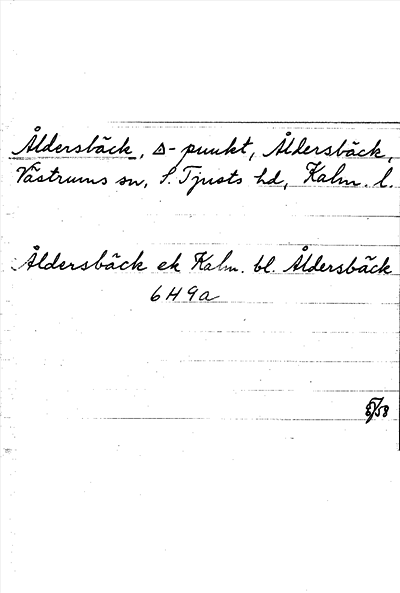 Åldersbäck, △-punkt, Åldersbäck,
Västrums sn, S. Tjusts hd, Kalm. l.
Åldersbäck ek Kalm. bl. Åldersbäck
6H9a